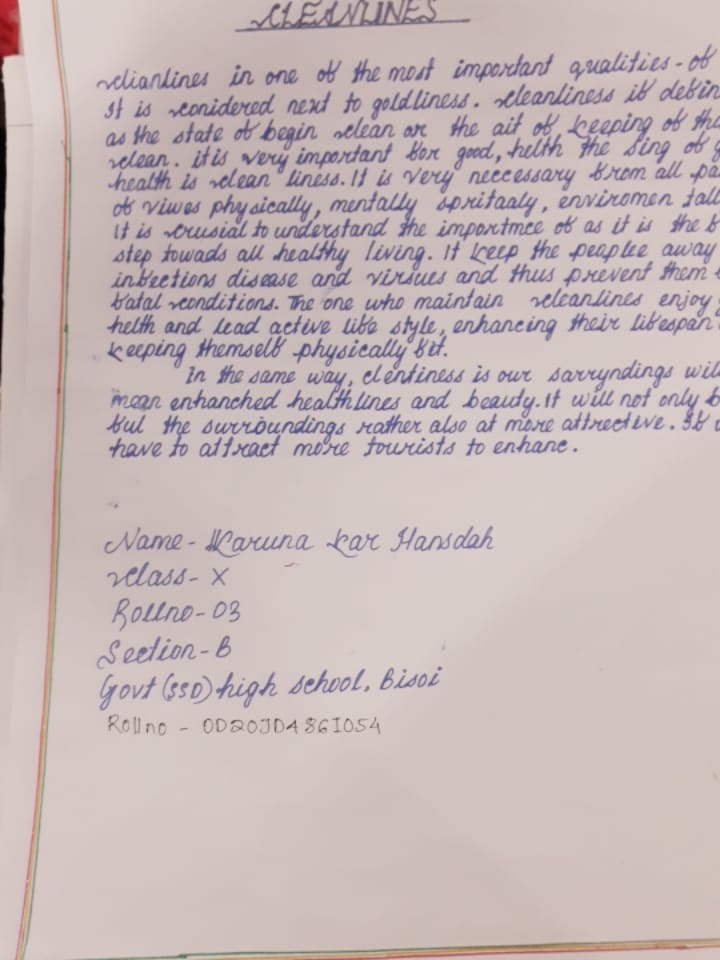 CLEANLINES
clianlines in one of the most important qualities - of
It is conidered next to goldliness. cleanliness if defin
as the state of begin clean or the ait of keeping of tha
clean. it is very important for good, helth the sing of g
health is clean liness. It is very neccessary from all pa
of viwes physically, mentally spritaaly, enviromen tall
It is crusial to understand the importmce of as it is the b
step towads all healthy living. It keep the peaplee away
infections disease and virsues and thus prevent them
fatal conditions. The one who maintain cleanlines enjoy g
helth and lead active life style, enhancing their lifespan
keeping themself physically fit.
In the same way, clentiness is our sarryndings wil
mean enhanched healthlines and beauty. it will not only b
ful the surroundings rather also at more attrective. It
have to attract more tourists to enhane.
Name - Karuna Kar Hansdah
Class - X
Rollno - 03
Section - B
Govt (SSD) high school, Bisoi
Rollno - OD20JD486I054